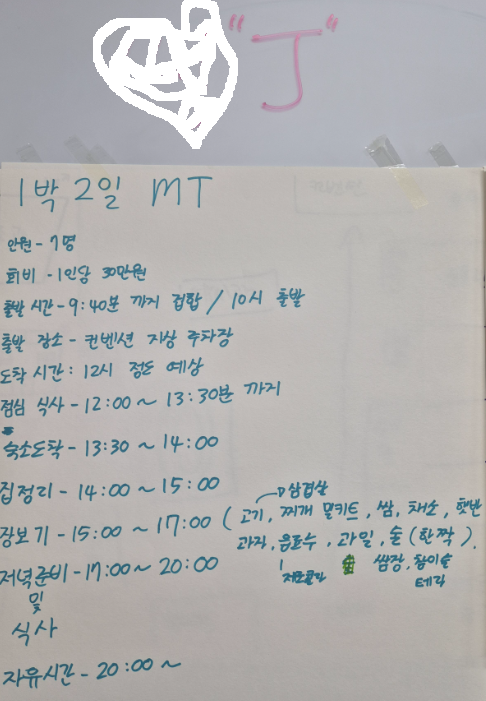 "J"
1박 2일 MT
인원 - 7명
회비 - 1인당 30만원
출발 시간 - 9:40분 까지 집합 / 10시 출발
출발 장소 - 컨벤션 지상 주차장
도착 시간 : 12시 정도 예상
점심 식사 - 12:00 ~ 13:30분 까지
숙소도착 - 13:30 ~ 14:00
짐정리 - 14:00 ~ 15:00
삼겹살
장보기 - 15:00 ~ 17:00 ( 고기, 찌개 밀키트, 쌈, 채소, 햇반
과자, 음료수, 과일, 술 (한짝).
제로콜라 쌈장, 참이슬
테라
저녁준비 - 17:00 ~ 20:00
및
식사
자유시간 - 20:00 ~